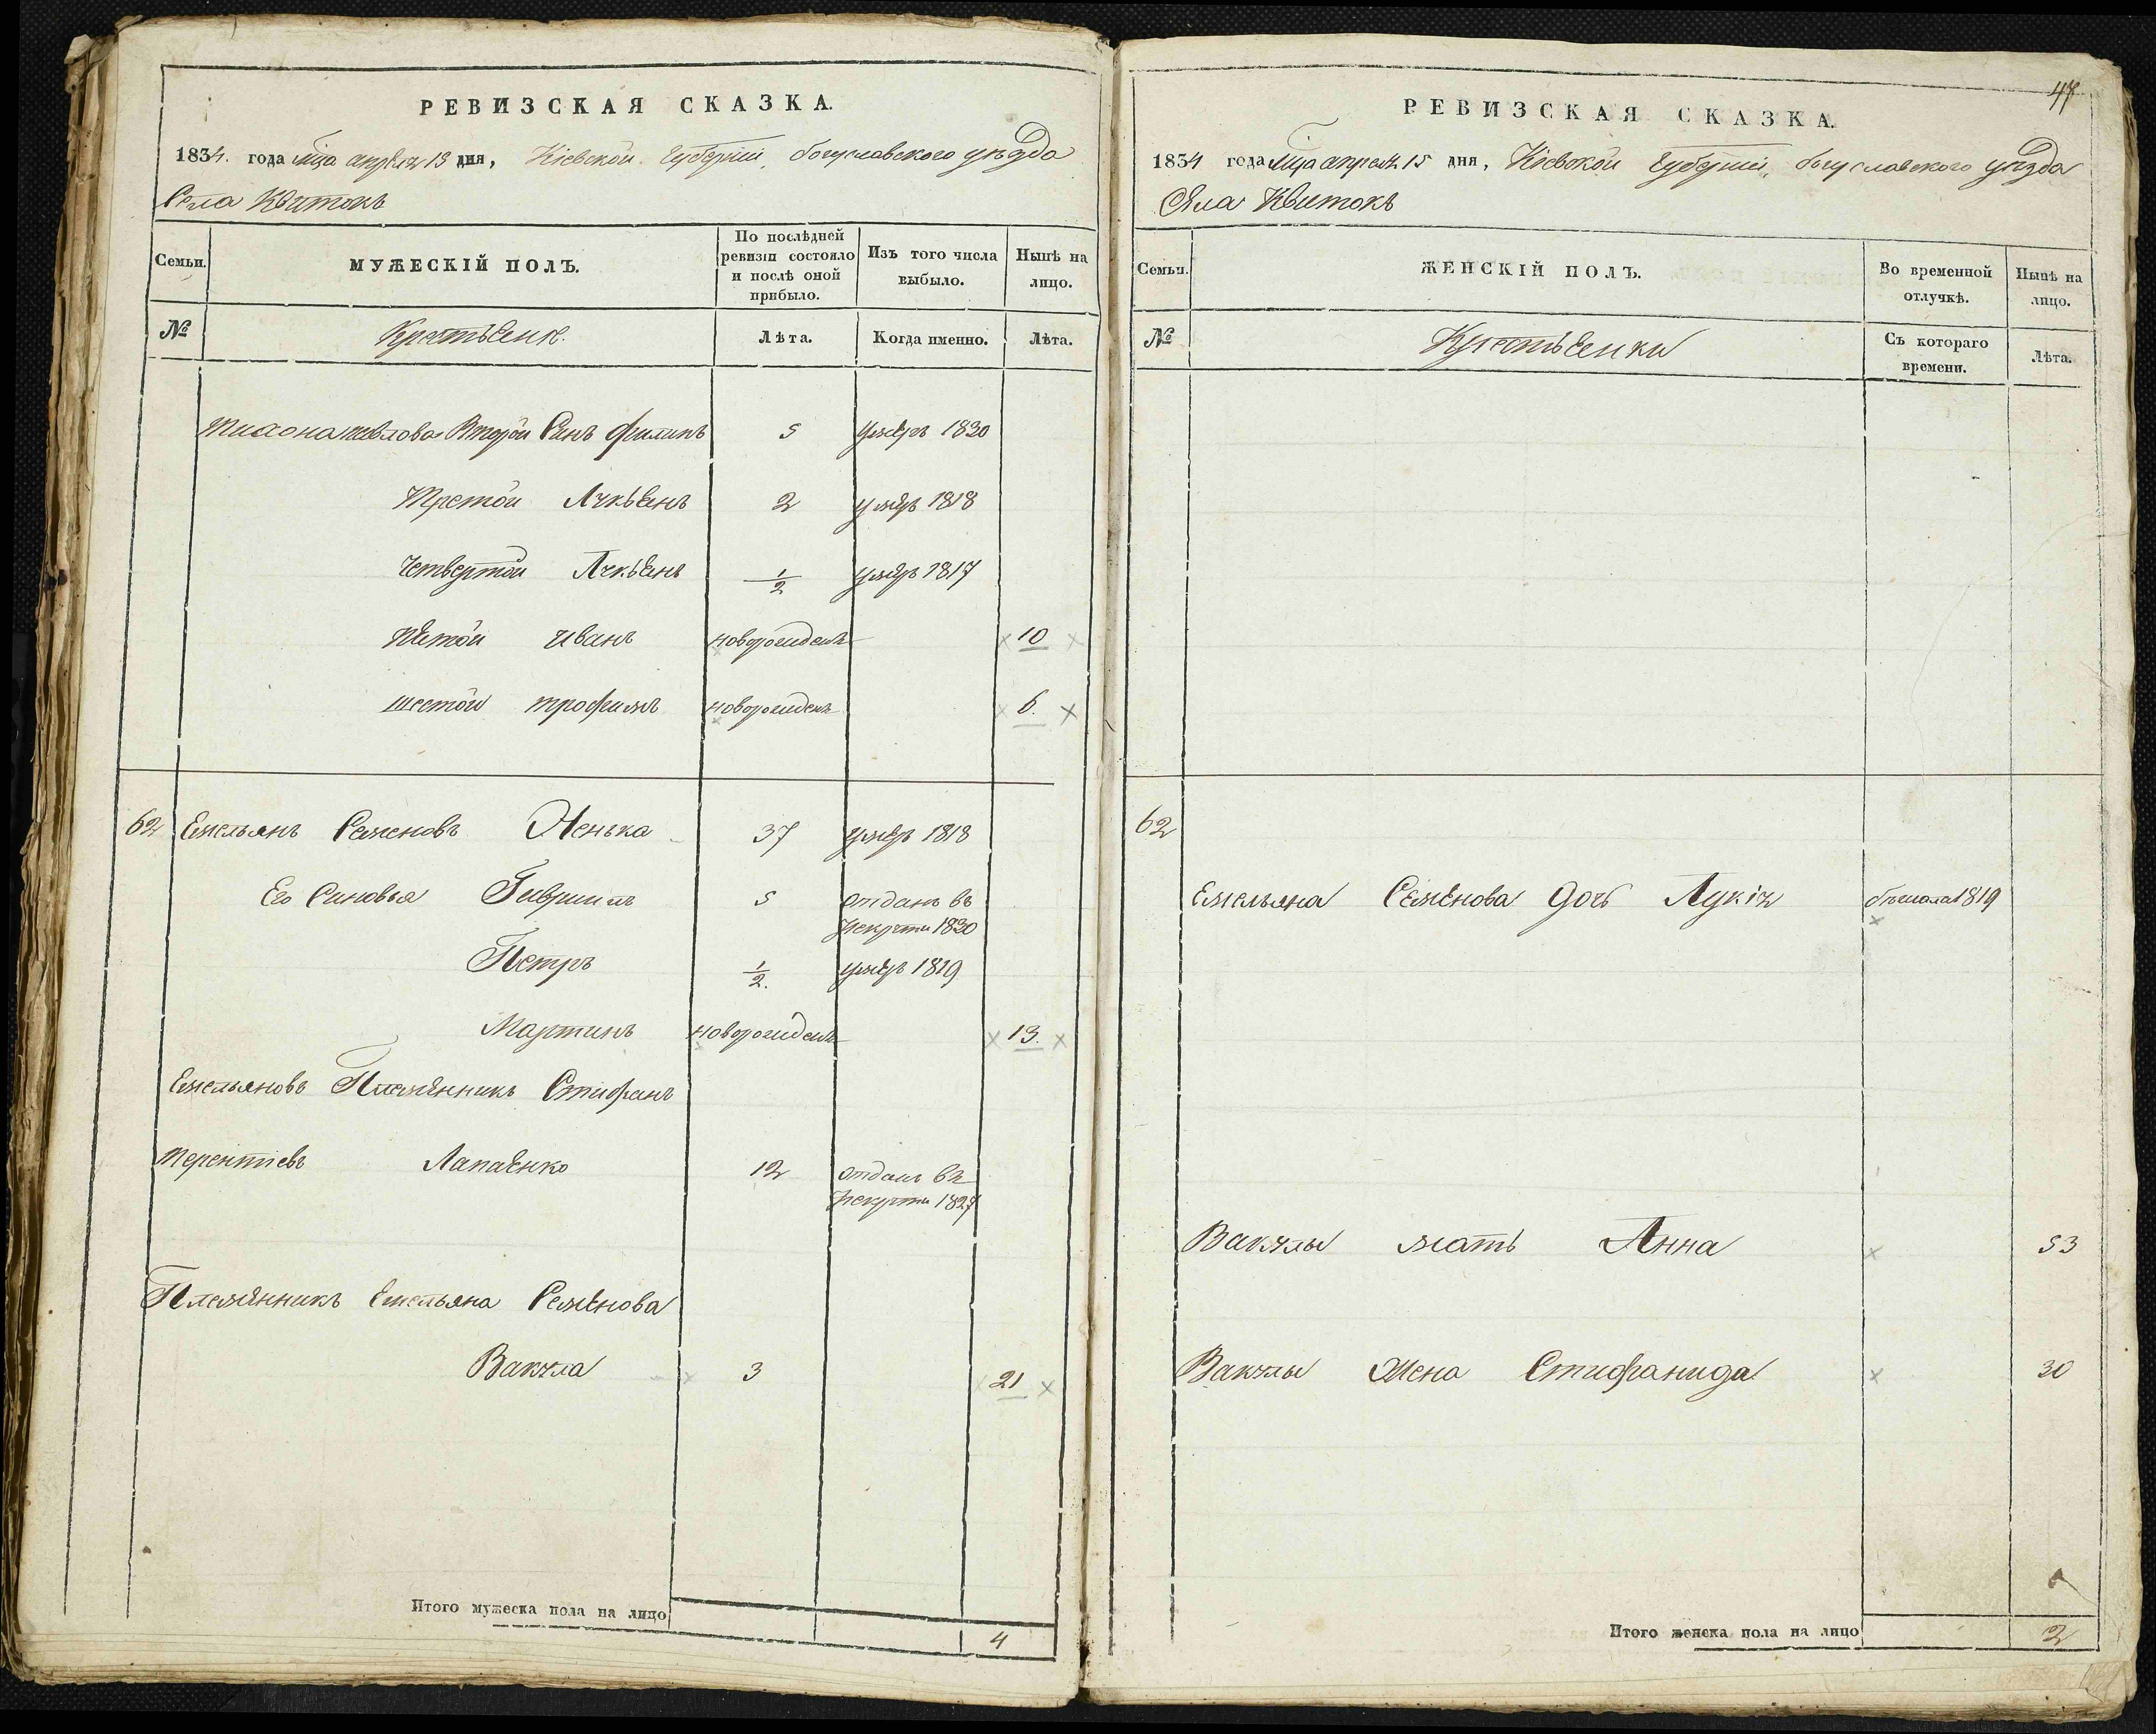 РЕВИЗСКАЯ СКАЗКА.
1834. года мца апреля 15 дня, Кіевской Губерніи, богуславского уезда
Села Квитокъ
Семьи.
МУЖЕСКІЙ ПОЛЪ.
По послѣдней ревизіи состояло и послѣ оной прибыло.
Изъ того числа выбыло.
Нынѣ на лицо.
№
Лѣта.
Когда именно.
Лѣта.
Второй Синъ Филипъ 5 умеръ 1830
Третой Лукьянъ 2 умеръ 1818
Четвертой Лукьянъ 1/2 умеръ 1817
Пятой Иванъ новорожденъ 10
шестой трофимъ новорожденъ 6.
62 Емельянъ Семеновъ 37 умеръ 1818
Его Синовья Гаврилъ 5 отданъ въ
рекруты 1830
Петръ 1/2. умеръ 1819
Мартинъ новорожденъ 13.
Емельяновъ Племянникъ Стифанъ
терентіевъ 12 отданъ въ
рекруты 1827
Племянникъ Емельяна Семенова
Вакула 3 21
Итого мужеска пола на лицо
4
47
РЕВИЗСКАЯ СКАЗКА.
1834 года мца апреля 15 дня, Кіевской Губерніи, богуславского уезда
Села Квитокъ
Семьи.
ЖЕНСКІЙ ПОЛЪ.
Во временной отлучкѣ.
Нынѣ на лицо.
№
Съ котораго времени.
Лѣта.
62
Емельяна Семенова дочь бежала 1819
Вакулы мать Анна 53
Вакулы жена Стифанида 30
Итого женска пола на лицо
2